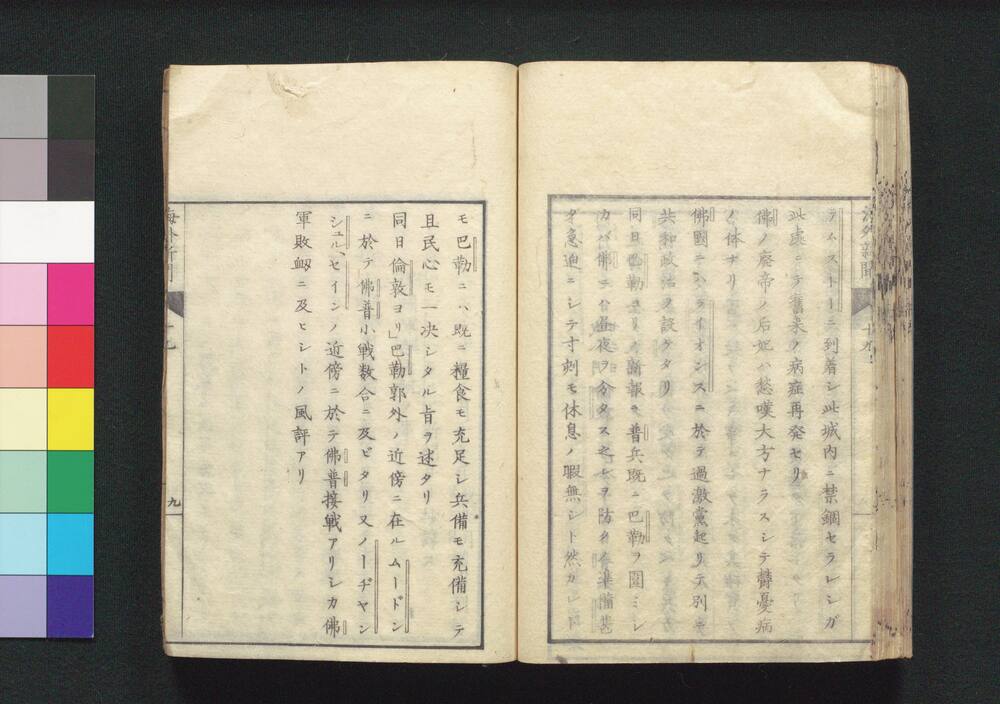 テムストーニ到着シ此城内ニ禁錮セラレシガ
此遠ニテ舊来ノ病症再発セリ
佛ノ廃帝ノ后妃ハ愁嘆大方ナラスシテ欝憂病
ノ体ナリ
佛國ニハライオンスニ於テ過激黨起リテ別ニ
共和政治ヲ設ケタリ
同日巴勒ヨリノ新報ニ普兵既ニ巴勒ヲ圍ミシ
カバ佛ニハ昼夜ヲ分タス之レヲ防ク準備甚
タ急迫ニシテ寸刻モ休息ノ暇無シト然カレ𪜈
モ巴勒ニハ既ニ糧食モ充足シ兵備モ充備シテ
且民心モ一决シタル旨ヲ述タリ
同日倫敦ヨリ巴勒郭外ノ近傍ニ在ルムードン
ニ於テ佛普小戦数合ニ及ビタリ又ノーヂヤン
シュル、セインノ近傍ニ於テ佛普接戦アリシカ佛
軍敗衂ニ及ヒシトノ風評アリ
海外新聞
九